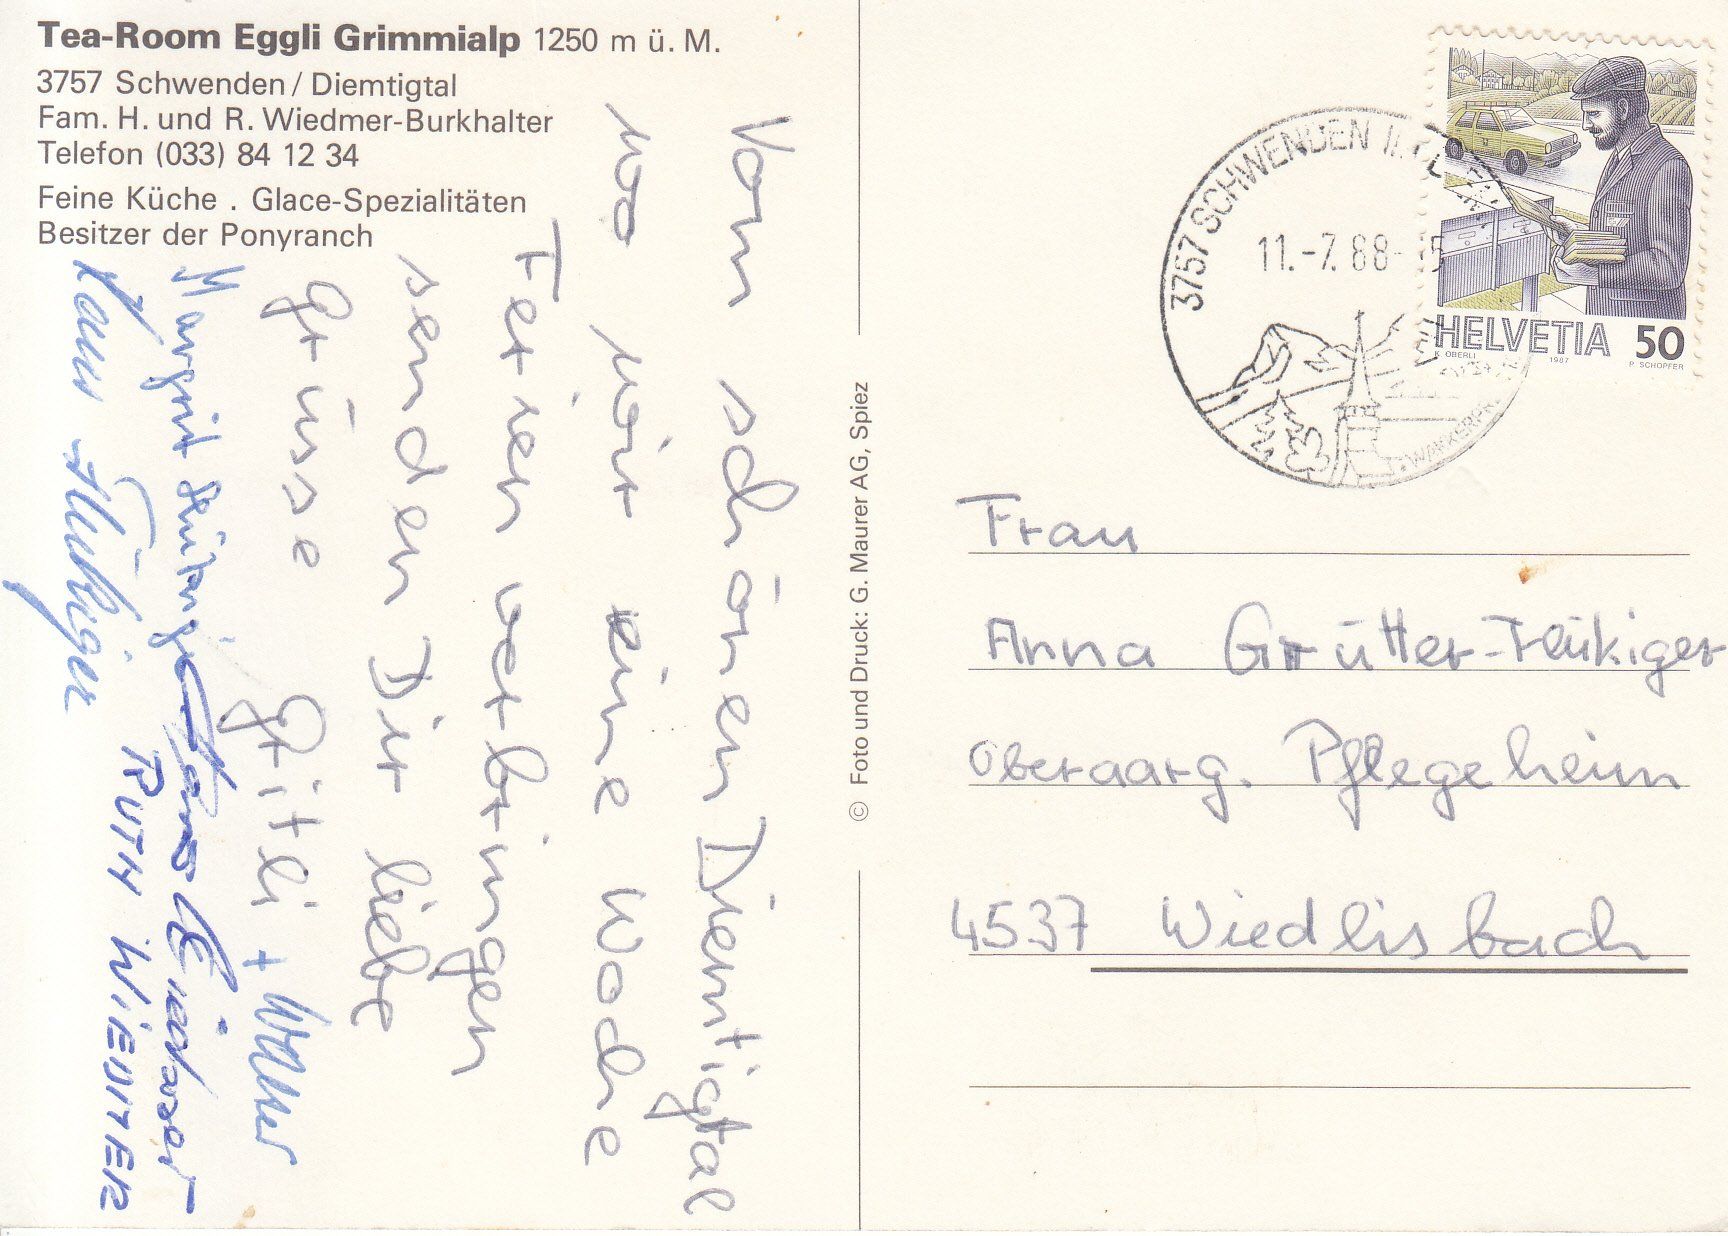 Tea-Room Eggli Grimmialp 1250 m ü. M.
3757 Schwenden / Diemtigtal
Fam. H. und R. Wiedmer-Burkhalter
Telefon (033) 84 12 34
Feine Küche . Glace-Spezialitäten
Besitzer der Ponyranch
Vom schönen Diemtigtal
wo wir eine Woche
Ferien verbringen
senden Dir liebe
Grüsse Gritli + Hans
Margrit Flükiger Hans Wiedmer
Hans Flükiger RUTH WIEDMER
© Foto und Druck: G. Maurer AG, Spiez
3757 SCHWENDEN
11.-7.88-15
HELVETIA 50
K. OBERLI 1987 P. SCHOPFER
Frau
Anna Grütter-Flükiger
Oberaarg. Pflegeheim
4537 Wiedlisbach